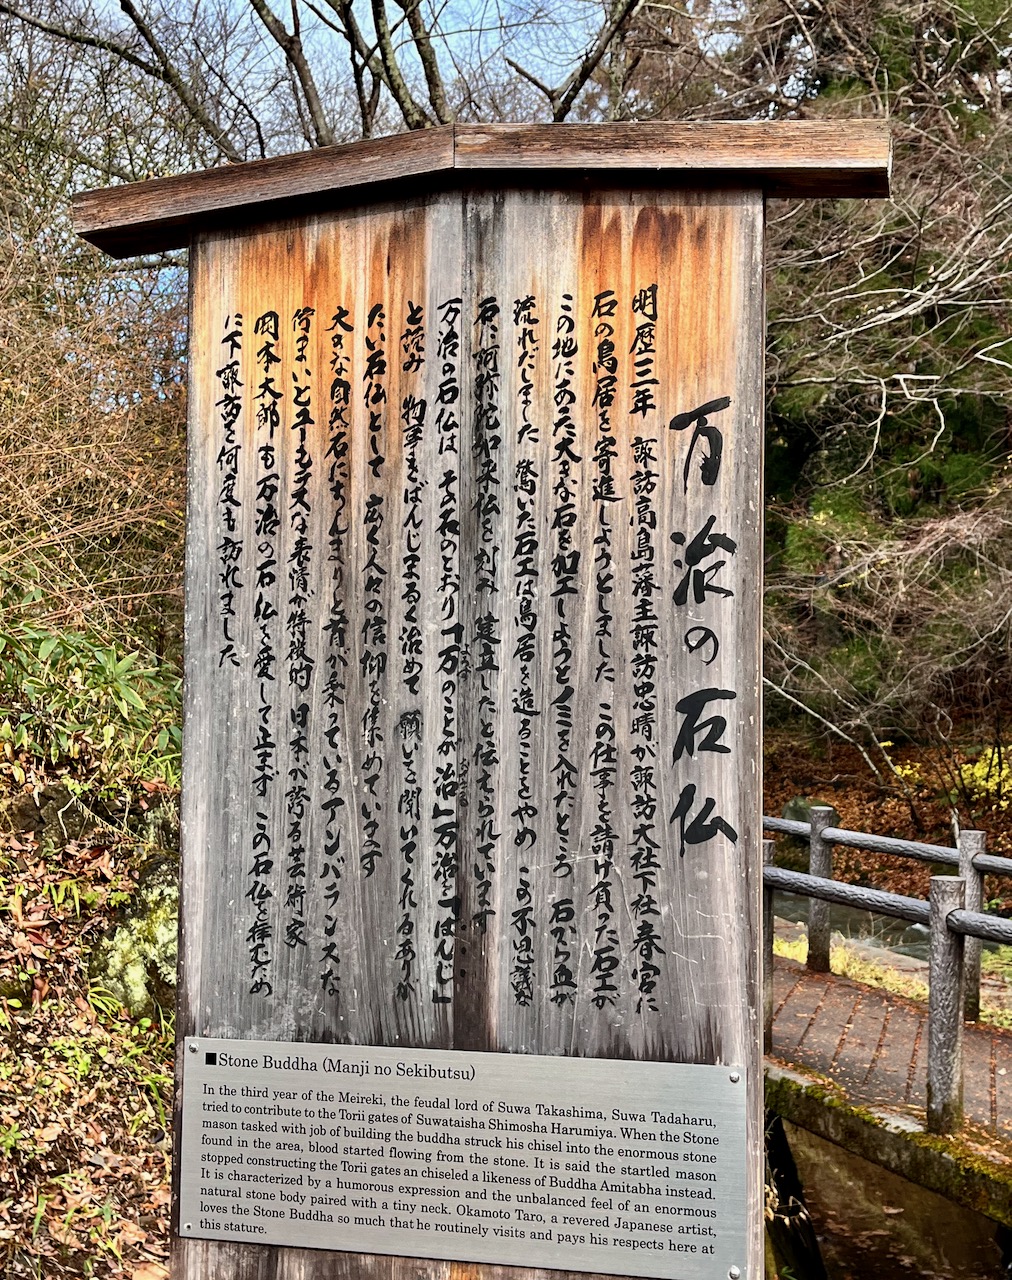 万治の石仏
明歴三年 諏訪高島藩主諏訪忠晴が諏訪大社下社春宮に
石の鳥居を寄進しようとしました この仕事を請け負った石工が
この地にあった大きな石を加工しようとノミを入れたところ 石から血が
流れだしました 驚いた石工は鳥居を造ることをやめ この不思議な
石に阿弥陀如来仏を刻み 建立したと伝えられています
万治の石仏は その名のとおり「万のことが治」万治を「ばんじ」
と読み 物事をばんじまるく治めて 願いを聞いてくれるありが
たい石仏として 広く人々の信仰を集めています
大きな自然石にちんまりと首が乗っているアンバランスな
佇まいとユーモラスな表情が特徴的 日本が誇る芸術家
岡本太郎も万治の石仏を愛して止まず この石仏を拝むため
に下諏訪を何度も訪れました
■Stone Buddha (Manji no Sekibutsu)
In the third year of the Meireki, the feudal lord of Suwa Takashima, Suwa Tadaharu,
tried to contribute to the Torii gates of Suwataisha Shimosha Harumiya. When the Stone
mason tasked with job of building the buddha struck his chisel into the enormous stone
found in the area, blood started flowing from the stone. It is said the startled mason
stopped constructing the Torii gates an chiseled a likeness of Buddha Amitabha instead.
It is characterized by a humorous expression and the unbalanced feel of an enormous
natural stone body paired with a tiny neck. Okamoto Taro, a revered Japanese artist,
loves the Stone Buddha so much that he routinely visits and pays his respects here at
this stature.